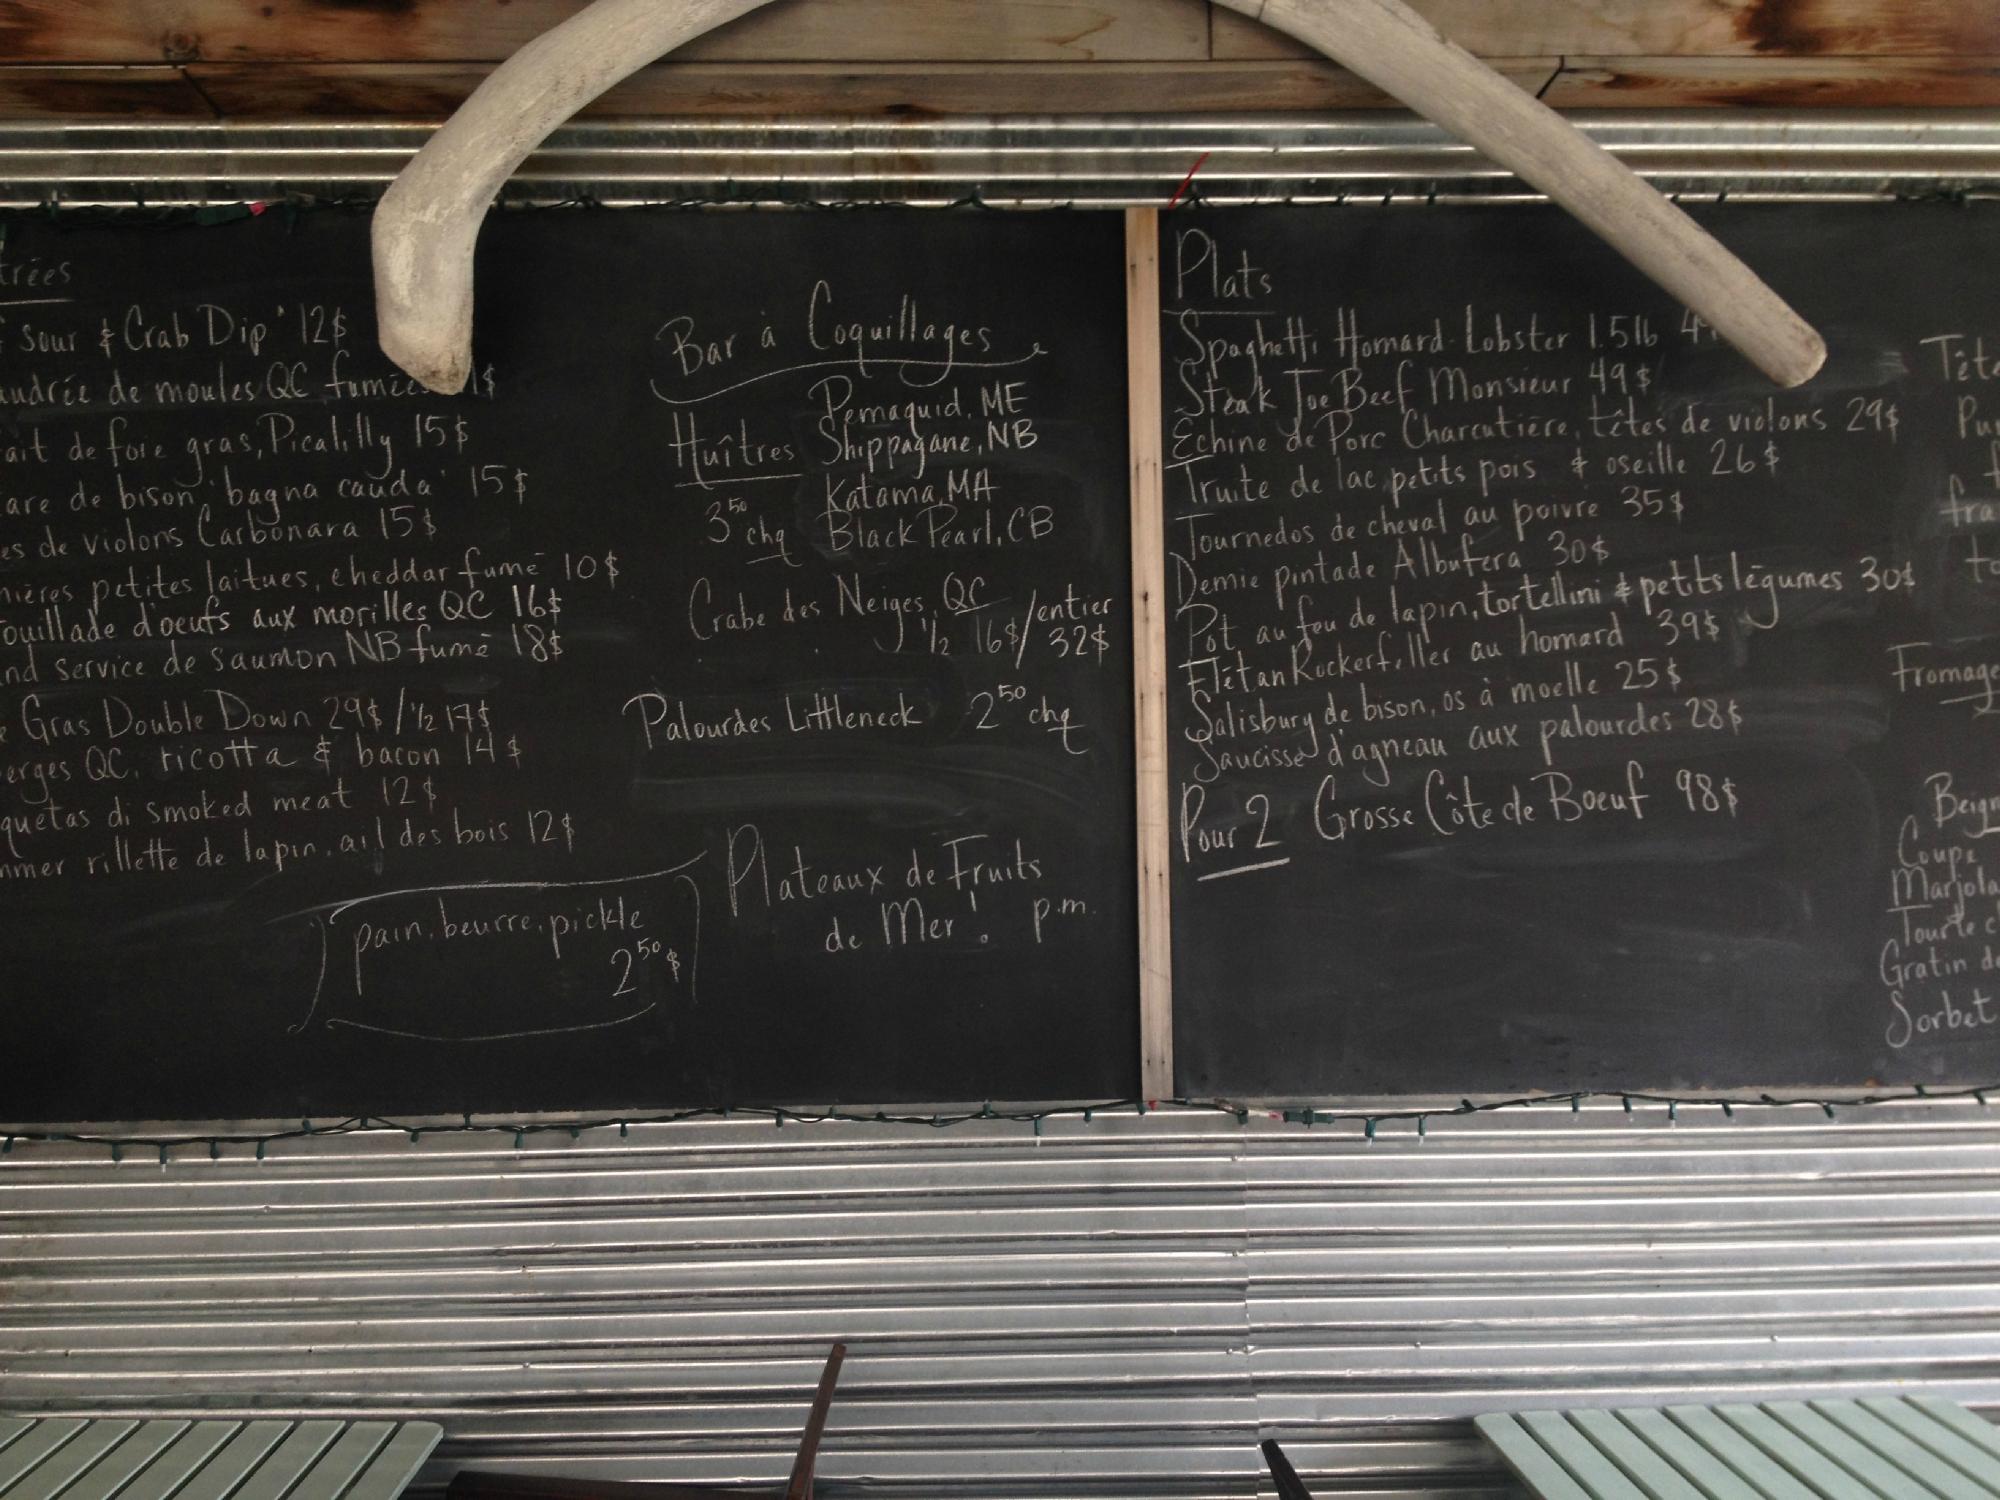 trées
sour & Crab Dip" 12$
de moules QC fumée
de foie gras, Picalilly 15$
de bison, "bagna cauda" 15$
de violons Carbonara 15$
petites laitues, cheddar fumé 10$
d'oeufs aux morilles QC 16$
service de saumon NB fumé 18$
Gras Double Down 29$/½ 17$
QC, ricotta & bacon 14$
di smoked meat 12$
rillette de lapin, ail des bois 12$
pain, beurre, pickle
2⁵⁰$
Bar à Coquillages
Huîtres
3⁵⁰ chq
Pemaquid, ME
Shippagane, NB
Katama, MA
Black Pearl, CB
Crabe des Neiges, QC
½ 16$/entier 32$
Palourdes Littleneck 2⁵⁰ chq
Plateaux de Fruits
de Mer! p.m.
Plats
Spaghetti Homard-Lobster 1.5lb
Steak Joe Beef Monsieur 49$
Échine de Porc Charcutière, têtes de violons 29$
Truite de lac, petits pois & oseille 26$
Tournedos de cheval au poivre 35$
Demie pintade Albufera 30$
Pot au feu de lapin, tortellini & petits légumes 30$
Flétan Rockerfeller au homard 39$
Salisbury de bison, os à moelle 25$
Saucisse d'agneau aux palourdes 28$
Pour 2 Grosse Côte de Boeuf 98$
Fromage
Coupe
Gratin
Sorbet